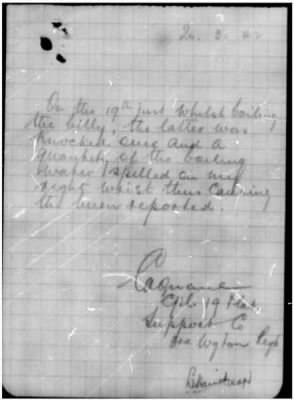 On the 19th inst whilst boiling
the billy, the latter was
knocked over and a
quantity of the boiling
water spilled on my
right wrist thus causing
the burn reported.
Cpl 19 Plat
Support Co
Regt